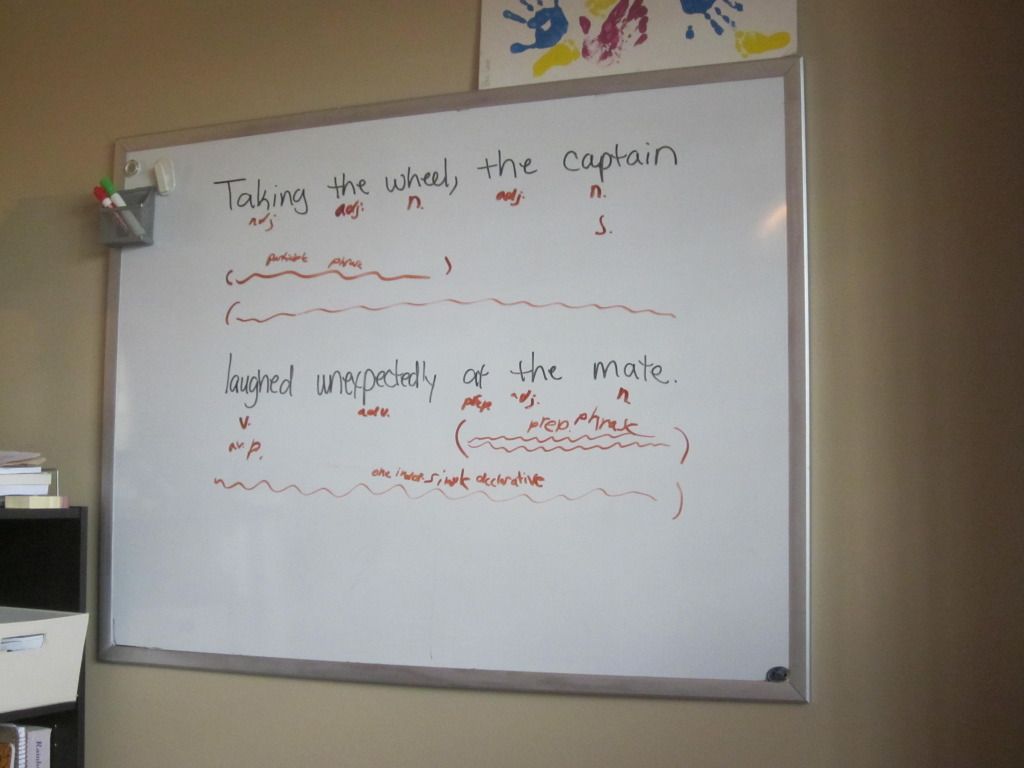 Taking the wheel, the captain
adj adj. n. adj. n.
S.
( phrase )
(
laughed unexpectedly at the mate.
v. adv. prep. adj. n
v.p. ( prep. phrase )
one indep. simple declarative )